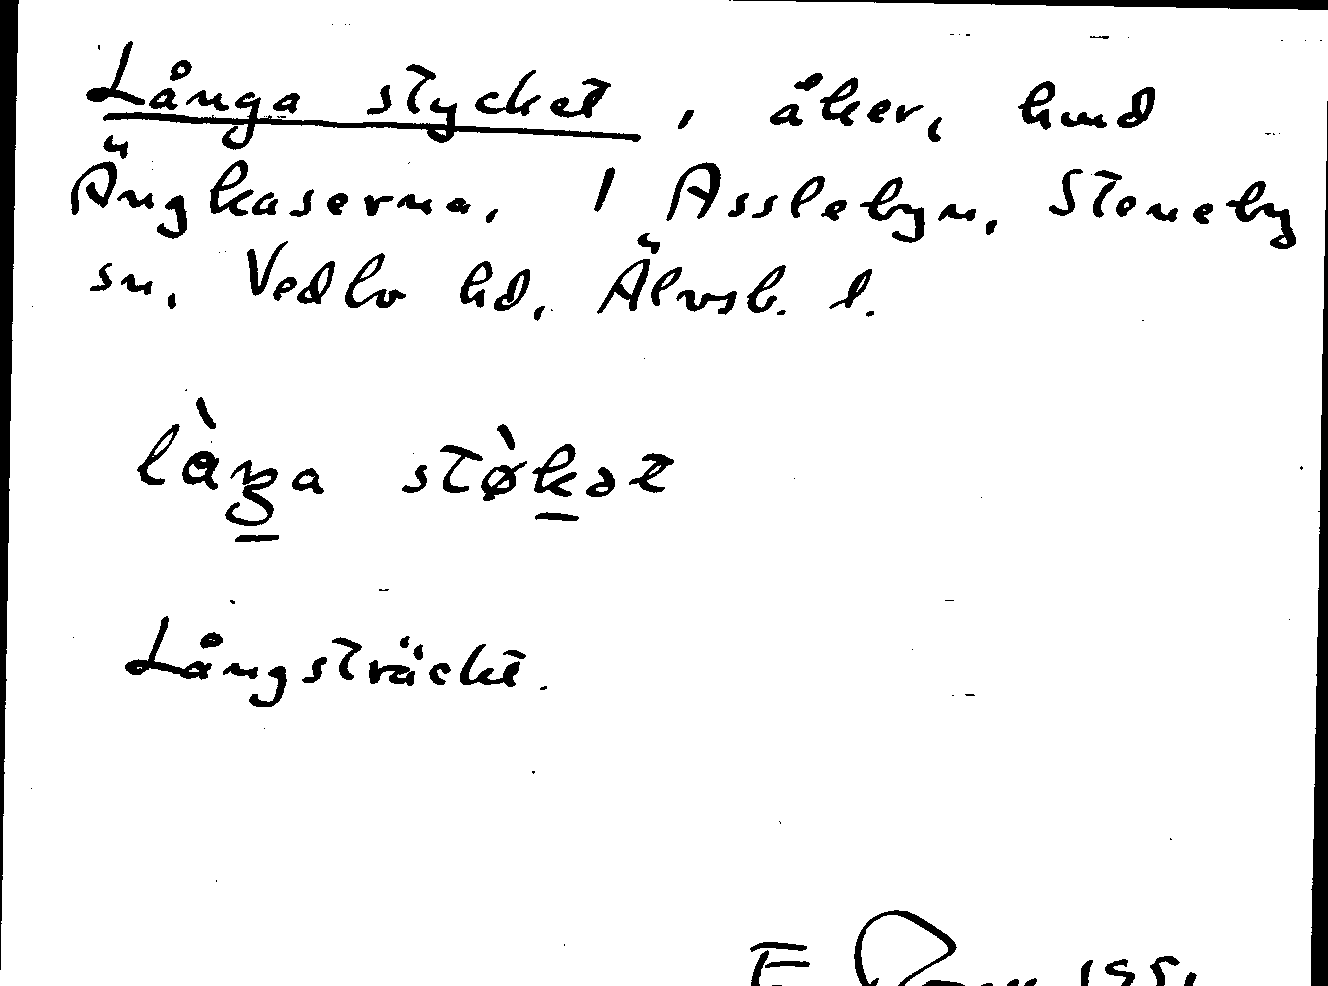 Långa stycket, åker, hmd
Ängkaserna, 1 Asslebyn, Steneby
sn, Vedbo hd, Älvsb. l.
làŋa stø̀kət
Långsträckt.
F. 1951